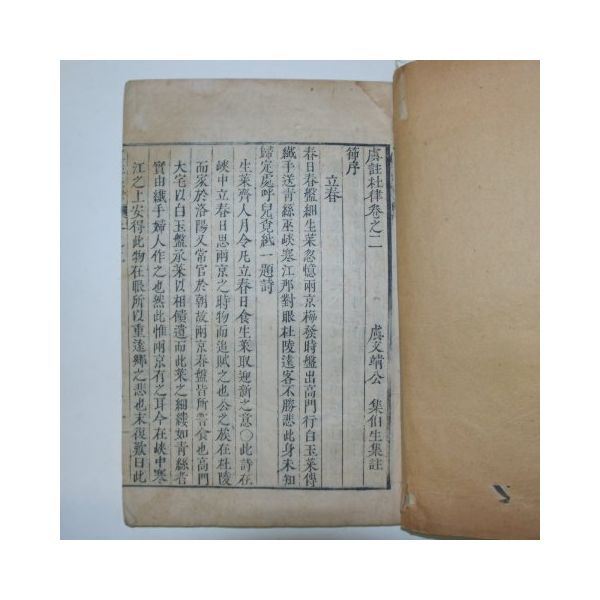 虞註杜律卷之二　虞文靖公　集伯生集註
節序
立春
春日春盤細生菜忽憶兩京梅發時盤出高門行白玉菜傳
纖手送青絲巫峽寒江那對眼杜陵遠客不勝悲此身未知
歸定處呼兒覓紙一題詩
生菜齊人月令凡立春日食生菜取迎新之意〇此詩在
峽中立春日思兩京之時物而追賦之也公之族在杜陵
而家於洛陽又常官於朝故兩京春盤皆所嘗食也高門
大宅以白玉盤承菜以相饋遺而此菜之細縷如青絲者
實由纖手婦人作之也然此惟兩京有之耳今在峽中寒
江之上安得此物在眼所以重遠鄉之悲也末復歎曰此